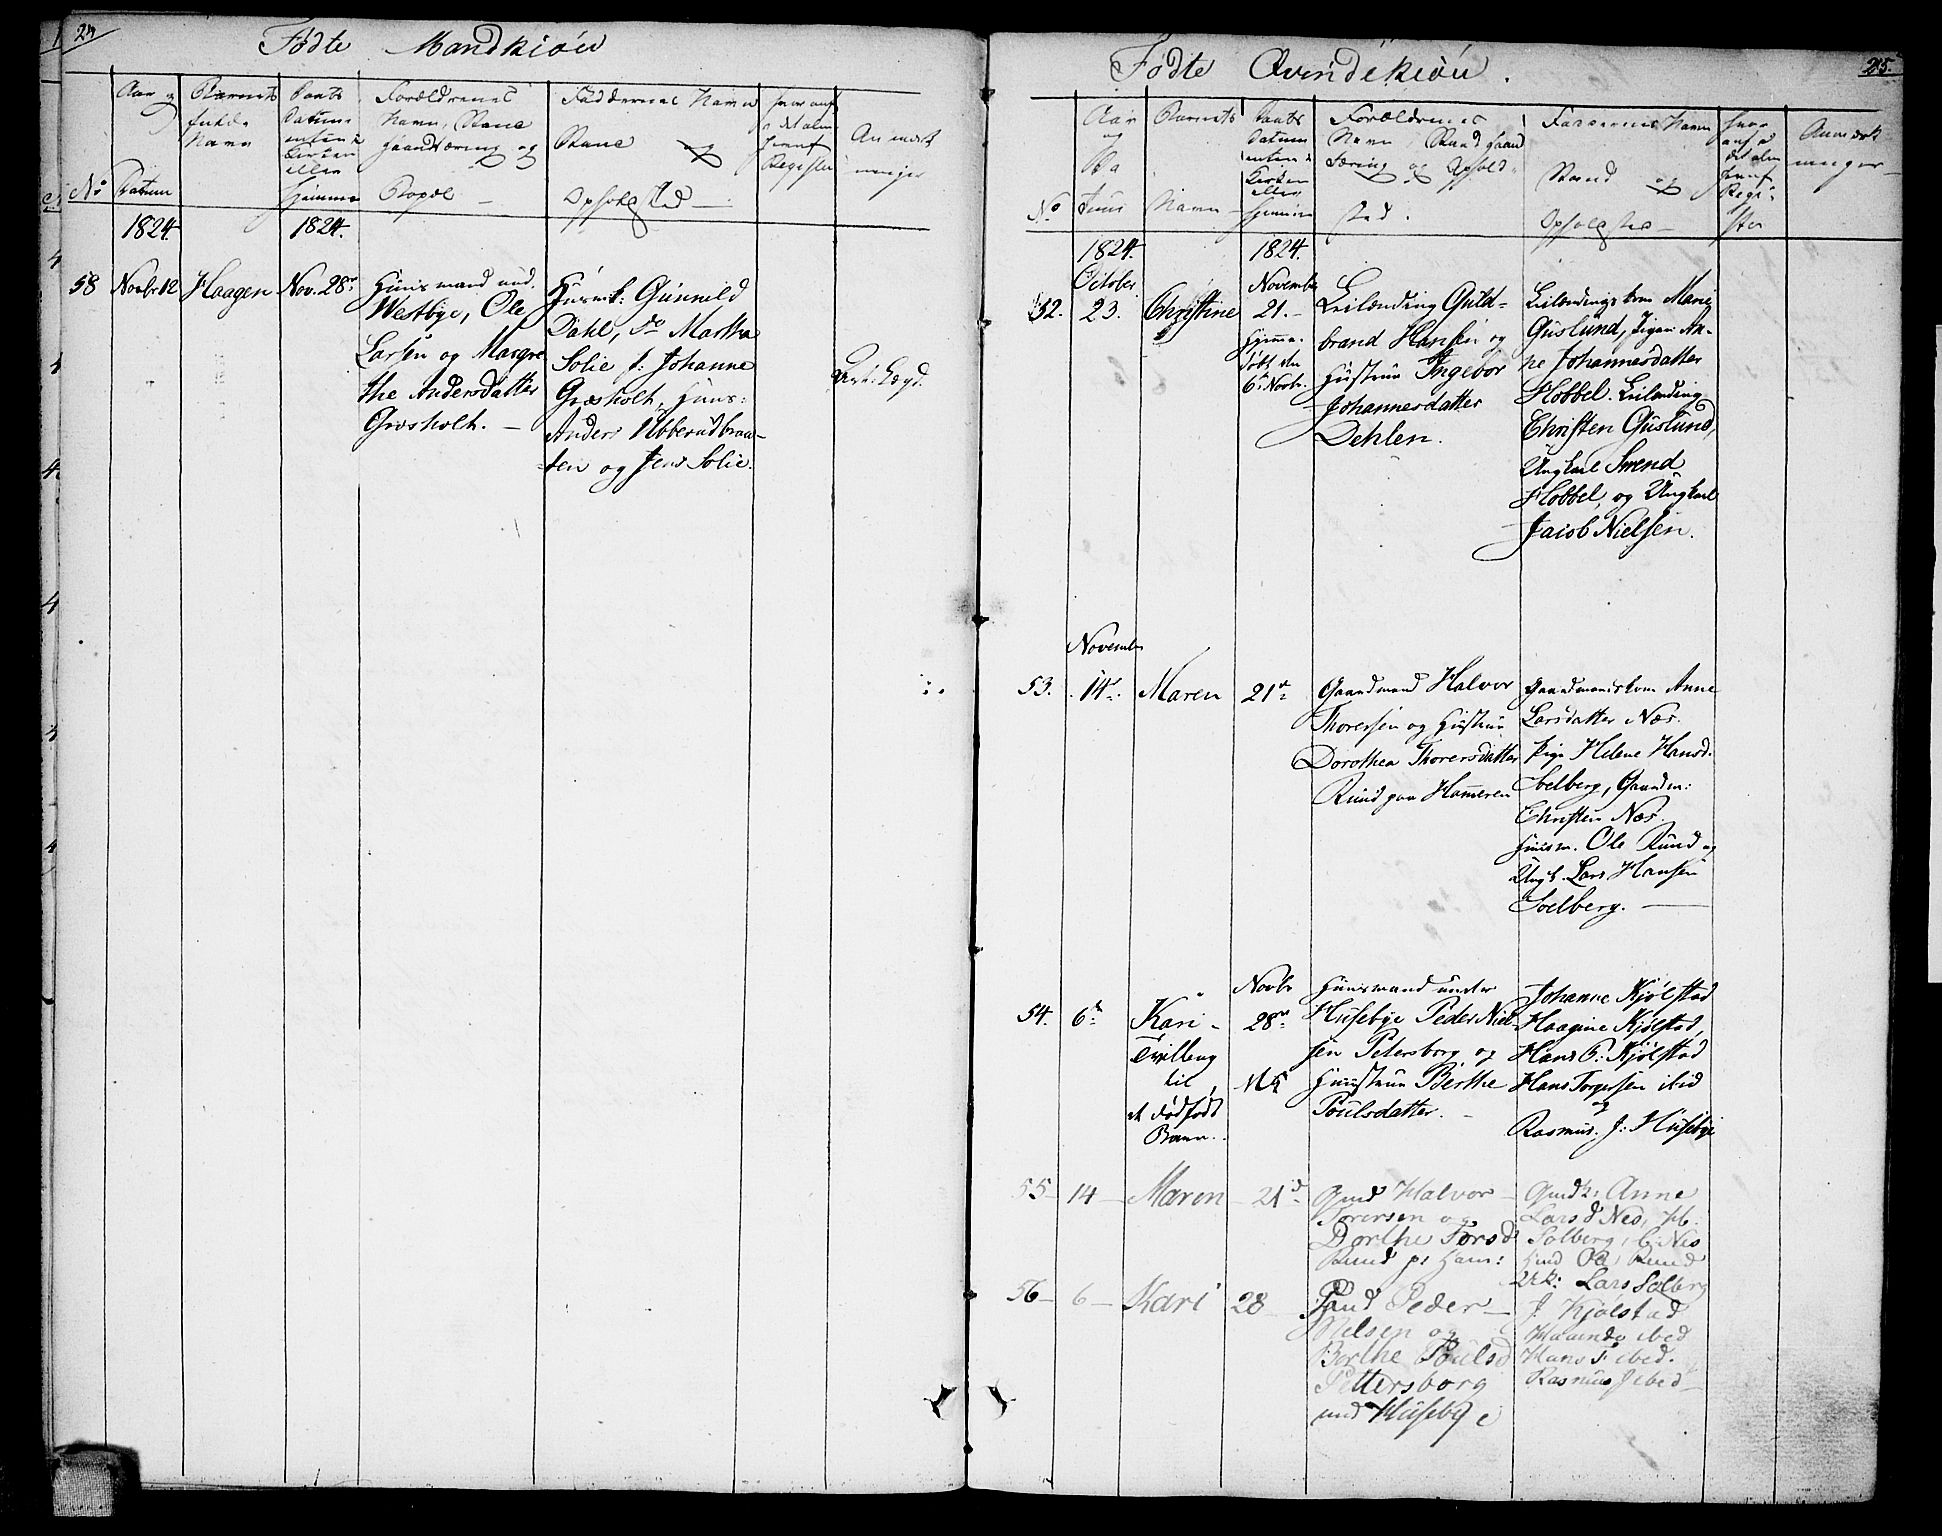 24
Födte Mandkiön
No
Aar og
Datum
Barnets
fulde
Navn
Daabs
Datum
enten i
Kirken
eller
hjemme
Forældrenes
Navn, Stand
Haandtæring og
Bopæl
Faddernes Navn
Stand og
Opholdsted
hvor anf.
i det alm
Jevnf
Register
Anmærk
ninger
1824.
1824.
58
Novbr 12
Haagen
Nov. 28
Huusmand und.
Westbye, Ole
Larsen og Margre
the Andersdatter
Græsholt. —
Huusmk: Gunnild
Dahl, do Martha
Solie p: Johanne
Græsholt, Huus:
Anders Ubberudbraa-
ten og Jens Solie.
25.
Födte Qvindekiön.
No
Aar
og
Da
tum
Barnets
Navn
Daabs
Datum
enten i
Kirken
eller
hjemme
Forældrenes
Navn, Stand Haand
tæring og Ophold-
sted.
Faddernes Navn
Stand og
Opholdsted —
hvor
anf i
det alm
Jevnf
Regi-
ster
Anmærk
ninger
1824.
1824.
52.
October
23.
Christine
November
21. —
Hjemme-
döbt den
6te Novbr.
Leilænding Guld-
brand Hansen og
Hustrue Ingebor
Johannesdatter
Dehlen.
Leilændingskone Marie
Guslund, Pigen An-
ne Johannesdatter
Hobbel. Leilænding
Christen Guslund,
Ungkarl Svend
Hobbel, og Ungkarl
Jacob Nielsen.
November
53.
14.
Maren
21
Gaardmand Halvor
Thoresen og Hustrue
Dorothea Thorersdatter
Rund paa Hameren
Gaardmandskone Anne
Larsdatter Næs.
Pige Helene Hansd.
Soelberg, Gaardm:
Christen Næs.
Huusm. Ole Rund og
Ungk. Lars Hansen
Soelberg. —
54.
6
Kari —
Tvilling
til
et dödfödt
Barn.
Novbr
28
Huusmand under
Husebye Peder Niel-
sen Petersborg og
Huustrue Berthe
Poulsdatter. —
Johanne Kjölstad
Haagine Kjölstad,
Hans P: Kjölstad
Hans Torgersen ibid
og
Rasmus. J: Husebye
55 —
14 —
Maren
— 21
Gmd Halvor —
Torersen og
Dorthe Torsd
Rund p: Ham:
Gmdk: Anne
Lars d Nes, H.
Solberg, C: Nes
Hmd Ole Rund
Uk: Lars Solberg
56 —
6 —
Kari
28
Peder —
Nelsen og
Berthe Poulsd
Pettersborg
und Husebye
J Kjölstad
ibid
Hans T ibid.
Rasmus J ibid —